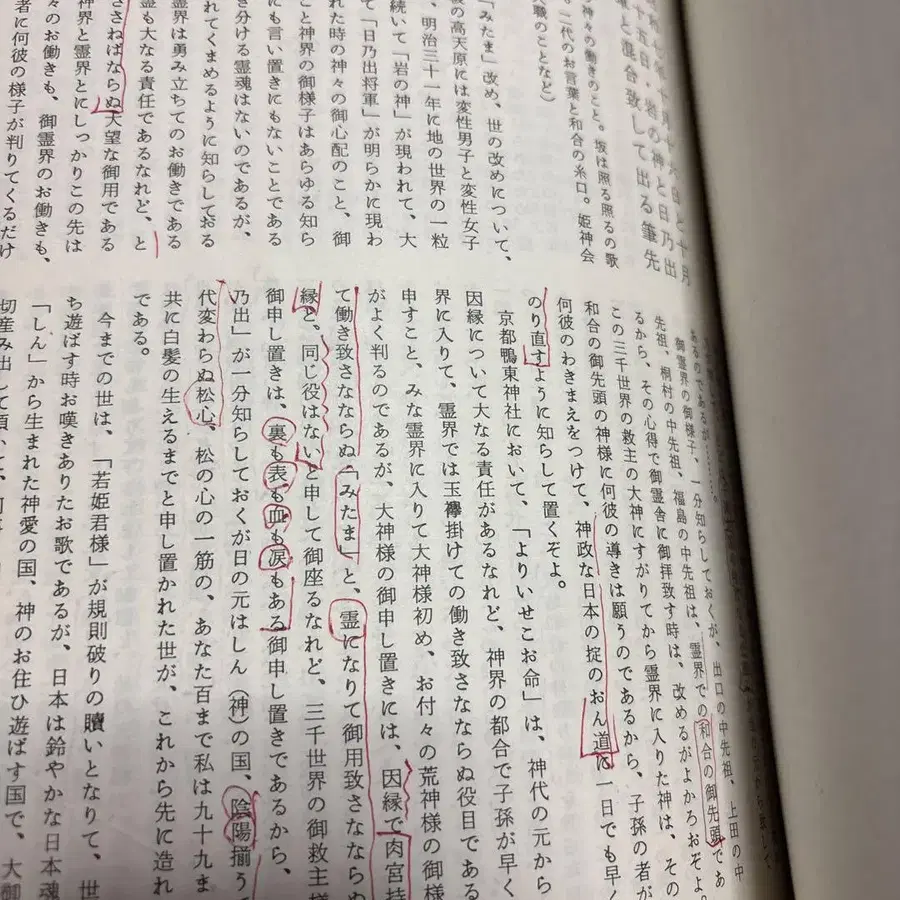 月十六日と十月
十五日・岩の神と日乃出
と混合致して出る筆先
神々の働きのこと。坂は照る照るの歌
二代のお言葉と和合の糸口。姫神会
職のことなど)
「みたま」改め、世の改めについて、
の高天原には変性男子と変性女子
続いて「岩の神」が現われて、大
、明治三十一年に地の世界の一粒
て「日乃出将軍」が明らかに現わ
れた時の神々の御心配のこと、御
こと神界の御様子はあらゆる知ら
にも言い置きにもないことである
き分ける霊魂はないのであるが、
れてくまめるように知らしておる
霊界は勇み立ちてのお働きである
も大なる責任であるなれど、と
ささねばならぬ大望な御用である
神界と霊界とにしっかりこの先は
々のお働きも、御霊界のお働きも、
者に何彼の様子が判りてくるだけ
あるのであるが……。
御霊界の御様子、一分知らしておくが、出口の中先祖、上田の中
先祖、桐村の中先祖、福島の中先祖は、霊界での和合の御先頭であ
るから、その心得で御霊舎に御拝致す時は、改めるがよかろおぞよ。
この三千世界の救主の大神にすがりてから霊界に入りた神は、その
和合の御先頭の神様に何彼の導きは願うのであるから、子孫の者が
何彼のわきまえをつけて、神政な日本の掟のおん道に一日でも早く
のり直すように知らして置くぞよ。
京都鴨東神社において、「よりいせこお命」は、神代の元から
因縁について大なる責任があるなれど、神界の都合で子孫が早く
界に入りて、霊界では玉襷掛けての働き致さなならぬ役目である
申すこと、みな霊界に入りて大神様初め、お付々の荒神様の御様
がよく判るのであるが、大神様の御申し置きには、因縁で肉宮持
て働き致さなならぬ「みたま」と、霊になりて御用致さなならぬ
縁と、同じ役はないと申して御座るなれど、三千世界の御救主様
御申し置きは、裏も表も血も涙もある御申し置きであるから、
乃出」が一分知らしておくが日の元はしん(神)の国、陰陽揃う
代変わらぬ松心、松の心の一筋の、あなた百まで私は九十九ま
共に白髪の生えるまでと申し置かれた世が、これから先に造れ
である。
今までの世は、「若姫君様」が規則破りの贖いとなりて、世
ち遊ばす時お嘆きありたお歌であるが、日本は鈴やかな日本魂
「しん」から生まれた神愛の国、神のお住ひ遊ばす国で、大御
切産み出して